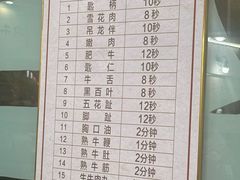 1 匙柄 10秒
2 雪花肉 8秒
3 吊龙伴 10秒
4 嫩肉 8秒
5 肥牛 12秒
6 匙仁 10秒
7 牛舌 8秒
8 黑百叶 8秒
9 五花趾 12秒
10 脚趾 12秒
11 胸口油 2分钟
12 熟牛鞭 1分钟
13 熟牛肚 2分钟
14 熟牛筋 2分钟
15 牛牛肉丸